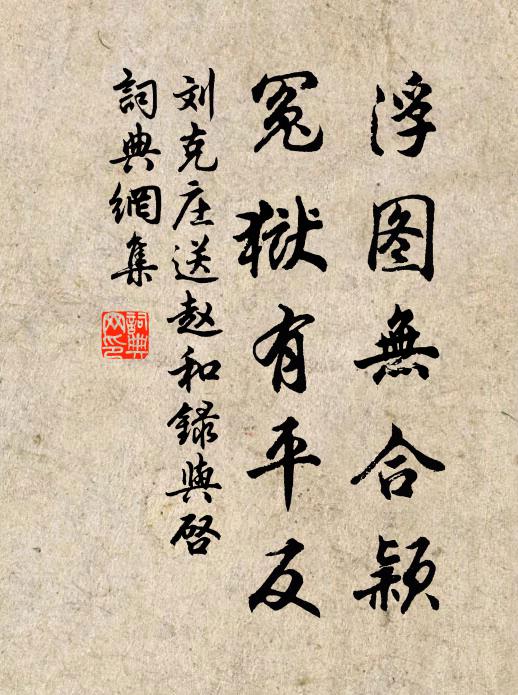 浮图無合颖
冤獄有平反
刘克庄送赵和録與啓
詞典網集
詞典網印